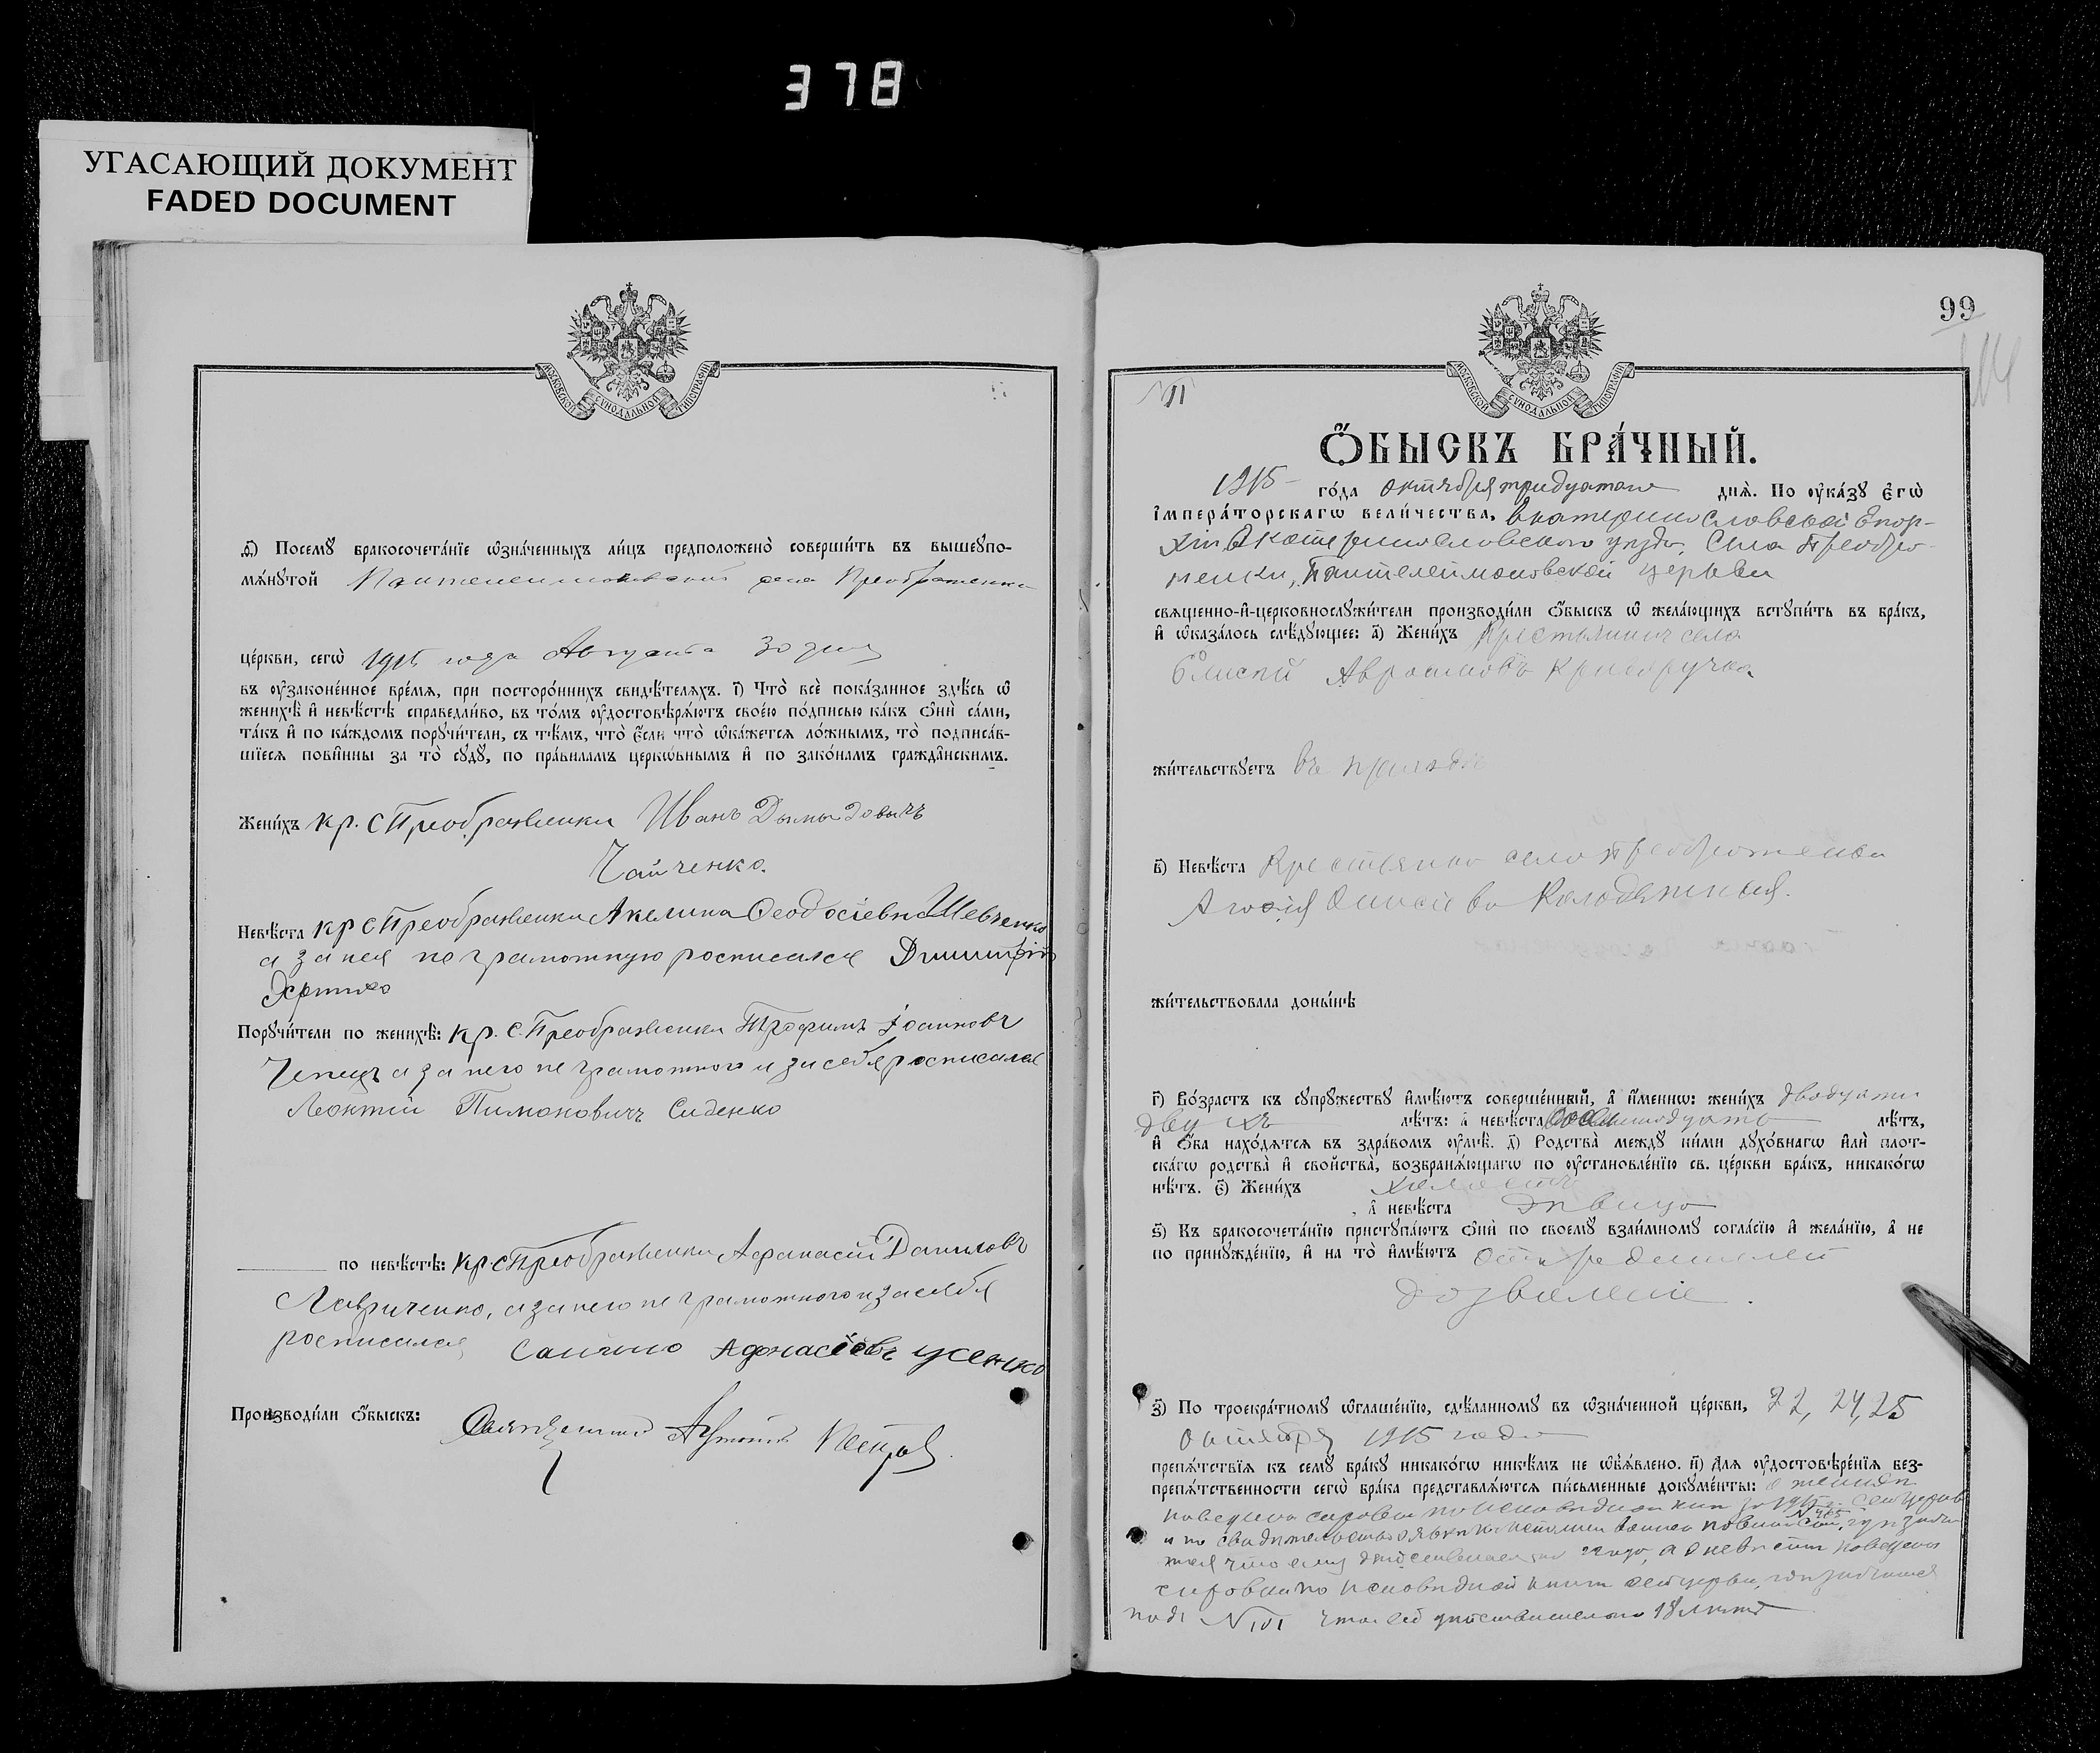 378
УГАСАЮЩИЙ ДОКУМЕНТ
FADED DOCUMENT
МОСКОВСКОЙ СУНОДАЛЬНОЙ ТИПОГРАФІИ
ѳ҃) Посемꙋ бракосочета́нїе ѡзна́ченныхъ ли́цъ предположено̀ соверши́ть въ вышеꙋпо-
мѧ́нꙋтой Пантелеимоновской села Преображенки
це́ркви, сегѡ̀ 1915 года Августа 30 дня
въ ᲂузаконе́нное вре́мѧ, при посторо́ннихъ свидѣ́телѧхъ. і҃) Что̀ всѐ пока́занное здѣ́сь ѡ
женихѣ̀ и҆ невѣ́стѣ справедли́во, въ то́мъ ᲂудостовѣрѧ́ютъ свое́ю по́дписью ка́къ ѻ҆нѝ са́ми,
та́къ и҆ по ка́ждомъ порꙋчи́тели, съ тѣ́мъ, что̀ є҆́сли что̀ ѡ҆ка́жетсѧ ло́жнымъ, то̀ подписа́в-
шїесѧ пови́нны за то̀ сꙋдꙋ̀, по пра́виламъ церко́внымъ и҆ по зако́намъ гражда́нскимъ.
Жени́хъ кр. с Преображенки Иванъ Дымыдовичъ
Чайченко.
Невѣ́ста кр с Преображенки Акелина Феодосіевна Шевченко
а за нея не грамотную росписался Димитрій
Порꙋчи́тели по женихѣ̀: кр. с. Преображенки Трофимъ Іоанновъ
Чепецъ а за него не грамотного и за себя росписался
Леонтій Пимоновичъ Сиденко
по невѣ́стѣ: кр. с Преображенки Афанасій Даниловъ
Лавриченко, а за него не грамотного и за себя
росписался Афонасіевъ Усенко
Произво́дили ѻ҆́быскъ: Священникъ Петровъ
99
N 11
МОСКОВСКОЙ СУНОДАЛЬНОЙ ТИПОГРАФІИ
Ѻ҆́БЫСКЪ БРА́ЧНЫЙ.
1915 го́да октября тридцатаго днѧ̀. По ᲂука́зꙋ Є҆гѡ̀
І҆мпера́торскагѡ вели́чества, Екатеринославской Епар-
хіи Екатеринославского уезда, Села Преобра-
женки, Пантелеймоновской церкви
свѧще́нно-и҆-церковнослꙋжи́тели производи́ли ѻ҆́быскъ ѡ жела́ющихъ встꙋпи́ть въ бра́къ,
и҆ ѡ҆каза́лось слѣ́дꙋющее: а҃) Жени́хъ Крестьянинъ села
Авраамовъ Криворучко
жи́тельствꙋетъ въ
в҃) Невѣ́ста Крестянка села Преображенки
Агафія
жи́тельствовала доны́нѣ
г҃) Во́зрастъ къ сꙋпрꙋ́жествꙋ и҆мѣ́ютъ соверше́нный, а҆ и҆́меннѡ: жени́хъ двадцати
двухъ лѣ́тъ: а҆ невѣ́ста восемнадцать лѣ́тъ,
и҆ ѻ҆́ба нахо́дѧтсѧ въ здра́вомъ ᲂумѣ̀. д҃) Родства̀ междꙋ ни́ми дꙋхо́внагѡ и҆лѝ плот-
ска́гѡ родства̀ и҆ сво́йства, возбранѧ́ющагѡ по ᲂустановле́нїю св. це́ркви бра́къ, никако́гѡ
нѣ́тъ. є҃) Жени́хъ холостъ
, а҆ невѣ́ста девица
ѕ҃) Къ бракосочета́нїю пристꙋпа́ютъ ѻ҆нѝ по своемꙋ̀ взаи́мномꙋ согла́сїю и҆ жела́нїю, а҆ не
по принꙋжде́нїю, и҆ на то̀ и҆мѣ́ютъ отъ родителей
дозволеніе.
з҃) По троекра́тномꙋ ѡ҆глаше́нїю, сдѣ́ланномꙋ въ ѡ҆зна́ченной це́ркви, 22, 24, 25
Октября 1915 года
препѧ́тствїѧ къ семꙋ̀ бра́кꙋ никако́гѡ никѣ́мъ не ѡ҆б̾ѧ́влено. и҃) Для ᲂудостовѣре́нїѧ без-
препѧ́тственности сегѡ̀ бра́ка представлѧ́ютсѧ пи́сьменные докꙋме́нты: о женихе
наведена справка по исповедной книге
а о невесте наведена
справка по исповедной книге сей церкви,
подъ N 101 что ей действительно 18 летъ